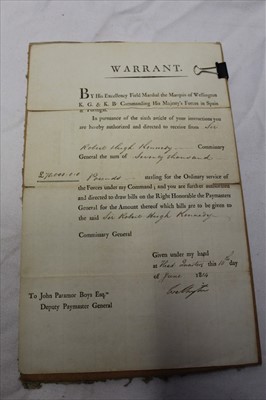 WARRANT.
BY His Excellency Field Marshal the Marquis of Wellington
K. G. & K. B. Commanding His Majesty's Forces in Spain
& Portugal.
In pursuance of the sixth article of your instructions you
are hereby authorized and directed to receive from Sir
Robert Hugh Kennedy Commissary
General the sum of Seventy thousand
£70,000.0.0 Pounds sterling for the Ordinary service of
the Forces under my Command; and you are further authorized
and directed to draw bills on the Right Honorable the Paymasters
General for the Amount thereof which bills are to be given to
the said Sir Robert Hugh Kennedy
Commissary General
Given under my hand
at Head Quarters this day
of June 1814
Wellington
To John Paramor Boys Esq.
Deputy Paymaster General